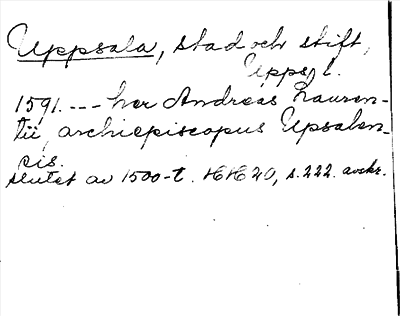 Uppsala, stad och stift,
Upps. l.
1591. --- her Andreas Lauren-
tii, archiepiscopus Upsalen-
cis.
slutet av 1500-t. HH 20, s. 222. avskr.